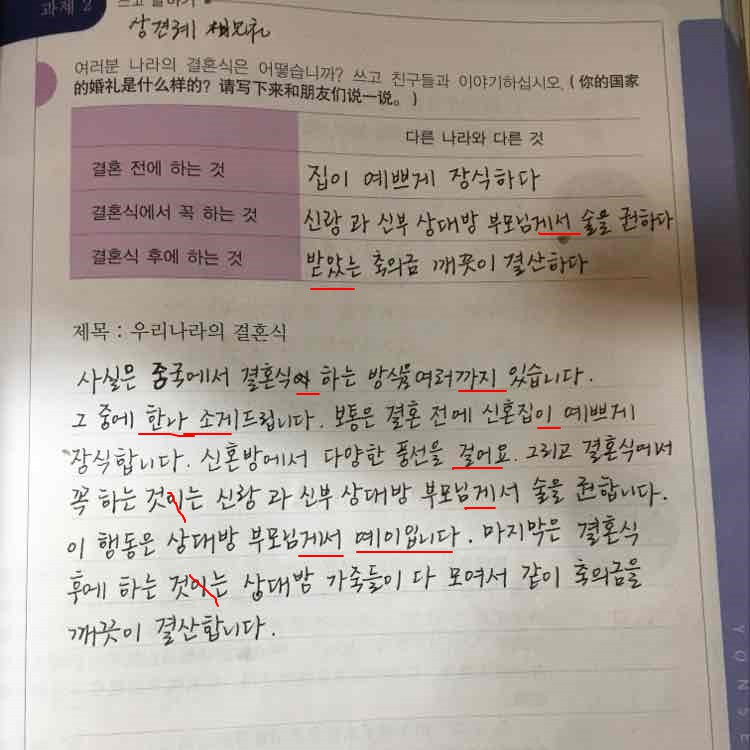 과제 2
쓰고 말하기
상견례 相见礼
여러분 나라의 결혼식은 어떻습니까? 쓰고 친구들과 이야기하십시오. (你的国家
的婚礼是什么样的? 请写下来和朋友们说一说。)
다른 나라와 다른 것
결혼 전에 하는 것 집이 예쁘게 장식하다
결혼식에서 꼭 하는 것 신랑 과 신부 상대방 부모님게서 술을 권하다
결혼식 후에 하는 것 받았는 축의금 깨끗이 결산하다
제목 : 우리나라의 결혼식
사실은 중국에서 결혼식 하는 방식을 여러까지 있습니다.
그 중에 한나 소게드립니다. 보통은 결혼 전에 신혼집이 예쁘게
장식합니다. 신혼방에서 다양한 풍선을 걸어요. 그리고 결혼식에서
꼭 하는 것이는 신랑 과 신부 상대방 부모님게서 술을 권합니다.
이 행동은 상대방 부모님게서 예이입니다. 마지막은 결혼식
후에 하는 것이는 상대방 가죽들이 다 모여서 같이 축의금을
깨끗이 결산합니다.
YONSE